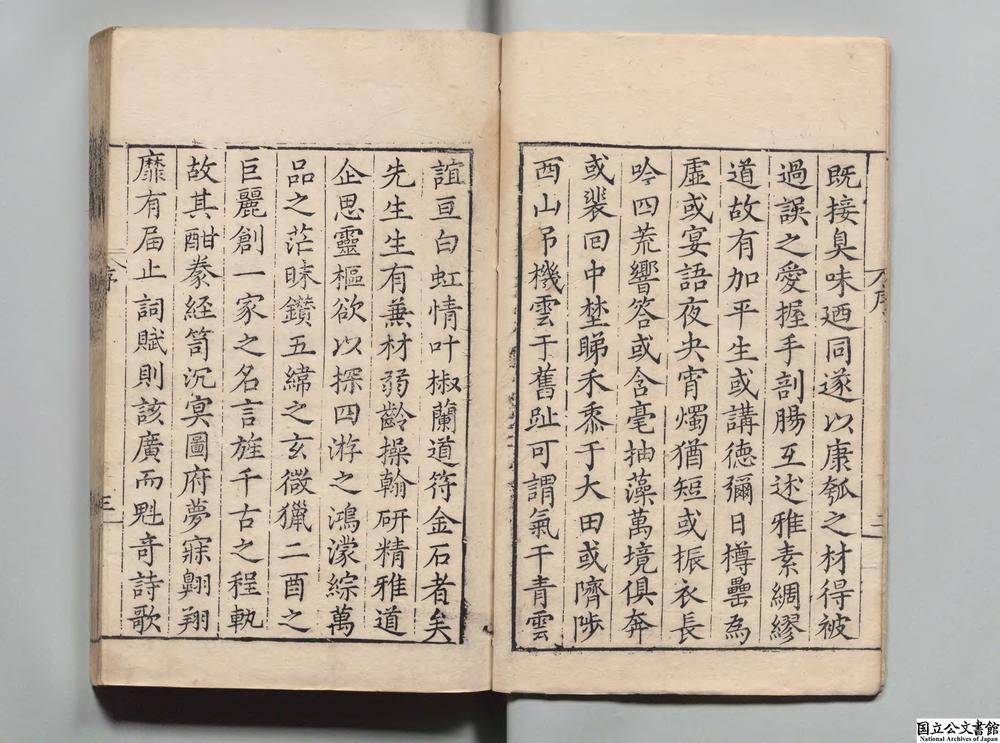 既接臭味廼同遂以康瓠之材得被
過誤之愛握手剖腸互述雅素綢繆
道故有加平生或講德彌日樽罍為
虛或宴語夜央宵燭猶短或振衣長
吟四荒響答或含毫抽藻萬境俱奔
或裴回中埜睇禾黍于大田或隮陟
西山吊機雲于舊趾可謂氣干青雲
誼亘白虹情叶椒蘭道符金石者矣
先生生有蒹材弱齡操翰研精雅道
企思靈樞欲以探四游之鴻濛綜萬
品之茫昧鑽五緯之玄微獵二酉之
巨麗創一家之名言旌千古之程軌
故其酣豢經笥沉冥圖府夢寐翺翔
靡有届止詞賦則該廣而魁奇詩歌
序
二
序
三
国立公文書館
National Archives of Japan